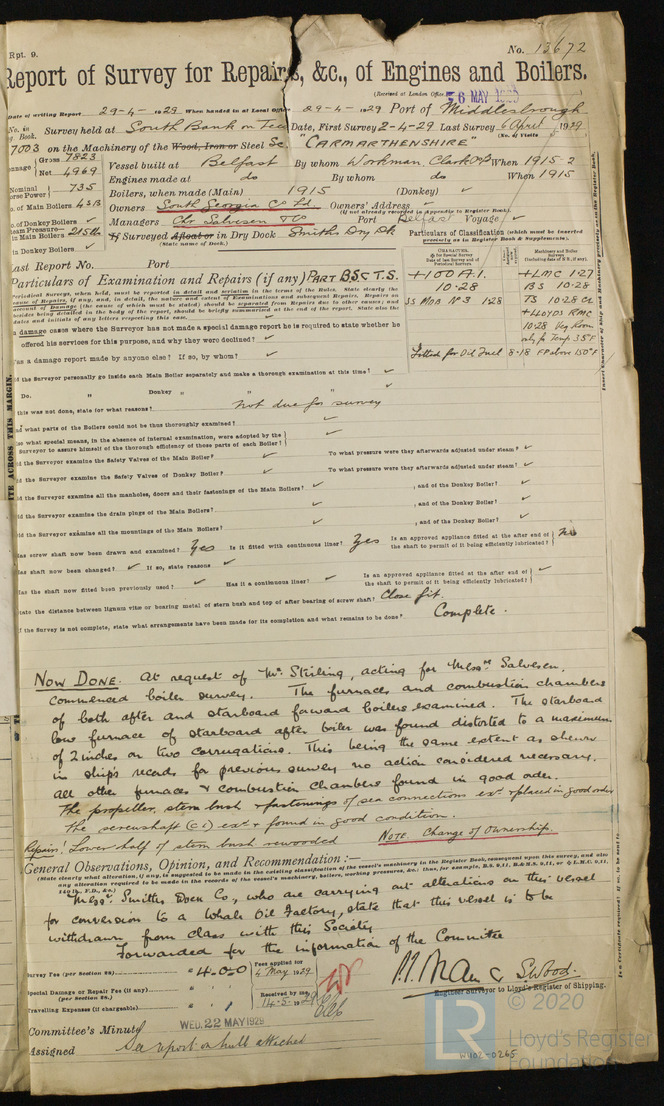 Rpt. 9.
No. 13672
Report of Survey for Repairs, &c., of Engines and Boilers.
(Received at London Office 6 MAY
Date of writing Report 29-4-1929 When handed in at Local Office 29-4-1929 Port of Middlesbrough
No. in Survey held at South Bank on Tees Date, First Survey 2-4-29 Last Survey 6 April 1929
Book. (No. of Visits
7003 on the Machinery of the Wood, Iron or Steel Sc "CARMARTHENSHIRE"
Gross 7823 Vessel built at Belfast By whom Workman, Clark When 1915-2
Net 4969 Engines made at do By whom do When 1915
Nominal Horse Power 735 Boilers, when made (Main) 1915 (Donkey) ✓
No. of Main Boilers 4SB Owners South Georgia Co Ld. Owners' Address ✓
(If not already recorded in Appendix to Register Book)
No. of Donkey Boilers ✓ Managers Chr Salvesen & Co Port Belfast Voyage ✓
Steam Pressure in Main Boilers 215 lb If Surveyed Afloat or in Dry Dock Smiths Dry Dk
(State name of Dock.)
in Donkey Boilers ✓
Particulars of Classification (which must be inserted precisely as in Register Book & Supplements).
+100 A.1. 10-28
SS Mbo No 3 1-28
Fitted for Oil Fuel 8-18 FP above 150°F
+LMC 1-27
BS 10-28
TS 10-28 CL
+LLOYDS RMC
10-28 Veg Room
only for Temp 35°F
Last Report No. Port
Particulars of Examination and Repairs (if any) PART BS & T.S.
Periodical Surveys, when held, must be reported in detail and seriatim in the terms of the Rules. State clearly the
cause of Repairs, if any, and, in detail, the nature and extent of Examinations and subsequent Repairs. Repairs on
account of Damage (the cause of which must be stated) should be separated from Repairs due to other causes; and
besides being detailed in the body of the report, should be briefly summarized at the end of the report. State also the
dates and initials of any letters respecting this case. ✓
In damage cases where the Surveyor has not made a special damage report he is required to state whether he
offered his services for this purpose, and why they were declined? ✓
Was a damage report made by anyone else? If so, by whom? ✓
Did the Surveyor personally go inside each Main Boiler separately and make a thorough examination at this time? ✓
Do. " Donkey " " " ✓
If this was not done, state for what reasons? Not due for survey
And what parts of the Boilers could not be thus thoroughly examined? ✓
Also what special means, in the absence of internal examination, were adopted by the Surveyor to assure himself of the thorough efficiency of those parts of each Boiler? ✓
Did the Surveyor examine the Safety Valves of the Main Boiler? ✓ To what pressure were they afterwards adjusted under steam? ✓
Did the Surveyor examine the Safety Valves of Donkey Boiler? ✓ To what pressure were they afterwards adjusted under steam? ✓
Did the Surveyor examine all the manholes, doors and their fastenings of the Main Boilers? ✓ , and of the Donkey Boiler? ✓
Did the Surveyor examine the drain plugs of the Main Boilers? ✓ , and of the Donkey Boiler? ✓
Did the Surveyor examine all the mountings of the Main Boilers? ✓ , and of the Donkey Boiler? ✓
Has screw shaft now been drawn and examined? Yes Is it fitted with continuous liner? Yes Is an approved appliance fitted at the after end of the shaft to permit of it being efficiently lubricated?
Has shaft now been changed? ✓ If so, state reasons ✓
Has the shaft now fitted been previously used? ✓ Has it a continuous liner? ✓ Is an approved appliance fitted at the after end of the shaft to permit of it being efficiently lubricated? ✓
State the distance between lignum vitæ or bearing metal of stern bush and top of after bearing of screw shaft? Close fit.
If the Survey is not complete, state what arrangements have been made for its completion and what remains to be done? Complete.
Now Done. At request of Mr Stirling, acting for Messrs Salvesen,
commenced boiler survey. The furnaces and combustion chambers
of both after and starboard forward boilers examined. The starboard
low furnace of starboard after boiler was found distorted to a maximum
of 2 inches on two corrugations. This being the same extent as shewn
in ship's records for previous survey no action considered necessary.
All other furnaces & combustion chambers found in good order.
The propeller, stern bush & fastenings of sea connections exd & placed in good order
The screwshaft (CL) exd & found in good condition.
Repairs: Lower half of stern bush rewooded Note. Change of Ownership
General Observations, Opinion, and Recommendation:—
(State clearly what alteration, if any, is suggested to be made in the existing classification of the vessel's machinery in the Register Book, consequent upon this survey, and also
any alteration required to be made in the records of the vessel's machinery, boilers, working pressures, &c.; thus, for example, B.S. 9,11, B.&M.S. 9,11, or L.M.C. 9,11,
140 lb., F.D., &c.)
Messrs. Smiths Dock Co., who are carrying out alterations on this vessel
for conversion to a Whale Oil Factory, state that this vessel is to be
withdrawn from class with this Society
Forwarded for the information of the Committee
Survey Fee (per Section 29) £ 4.0.0 Fees applied for 4 May 1929
Special Damage or Repair Fee (if any) (per Section 28.) £ Received by me, 14-5-1929
Travelling Expenses (if chargeable) £
Engineer Surveyor to Lloyd's Register of Shipping.
Committee's Minute WED. 22 MAY 1929
Assigned See report on hull attached
W402-0265
© 2020
LR
Lloyd's Register
Foundation